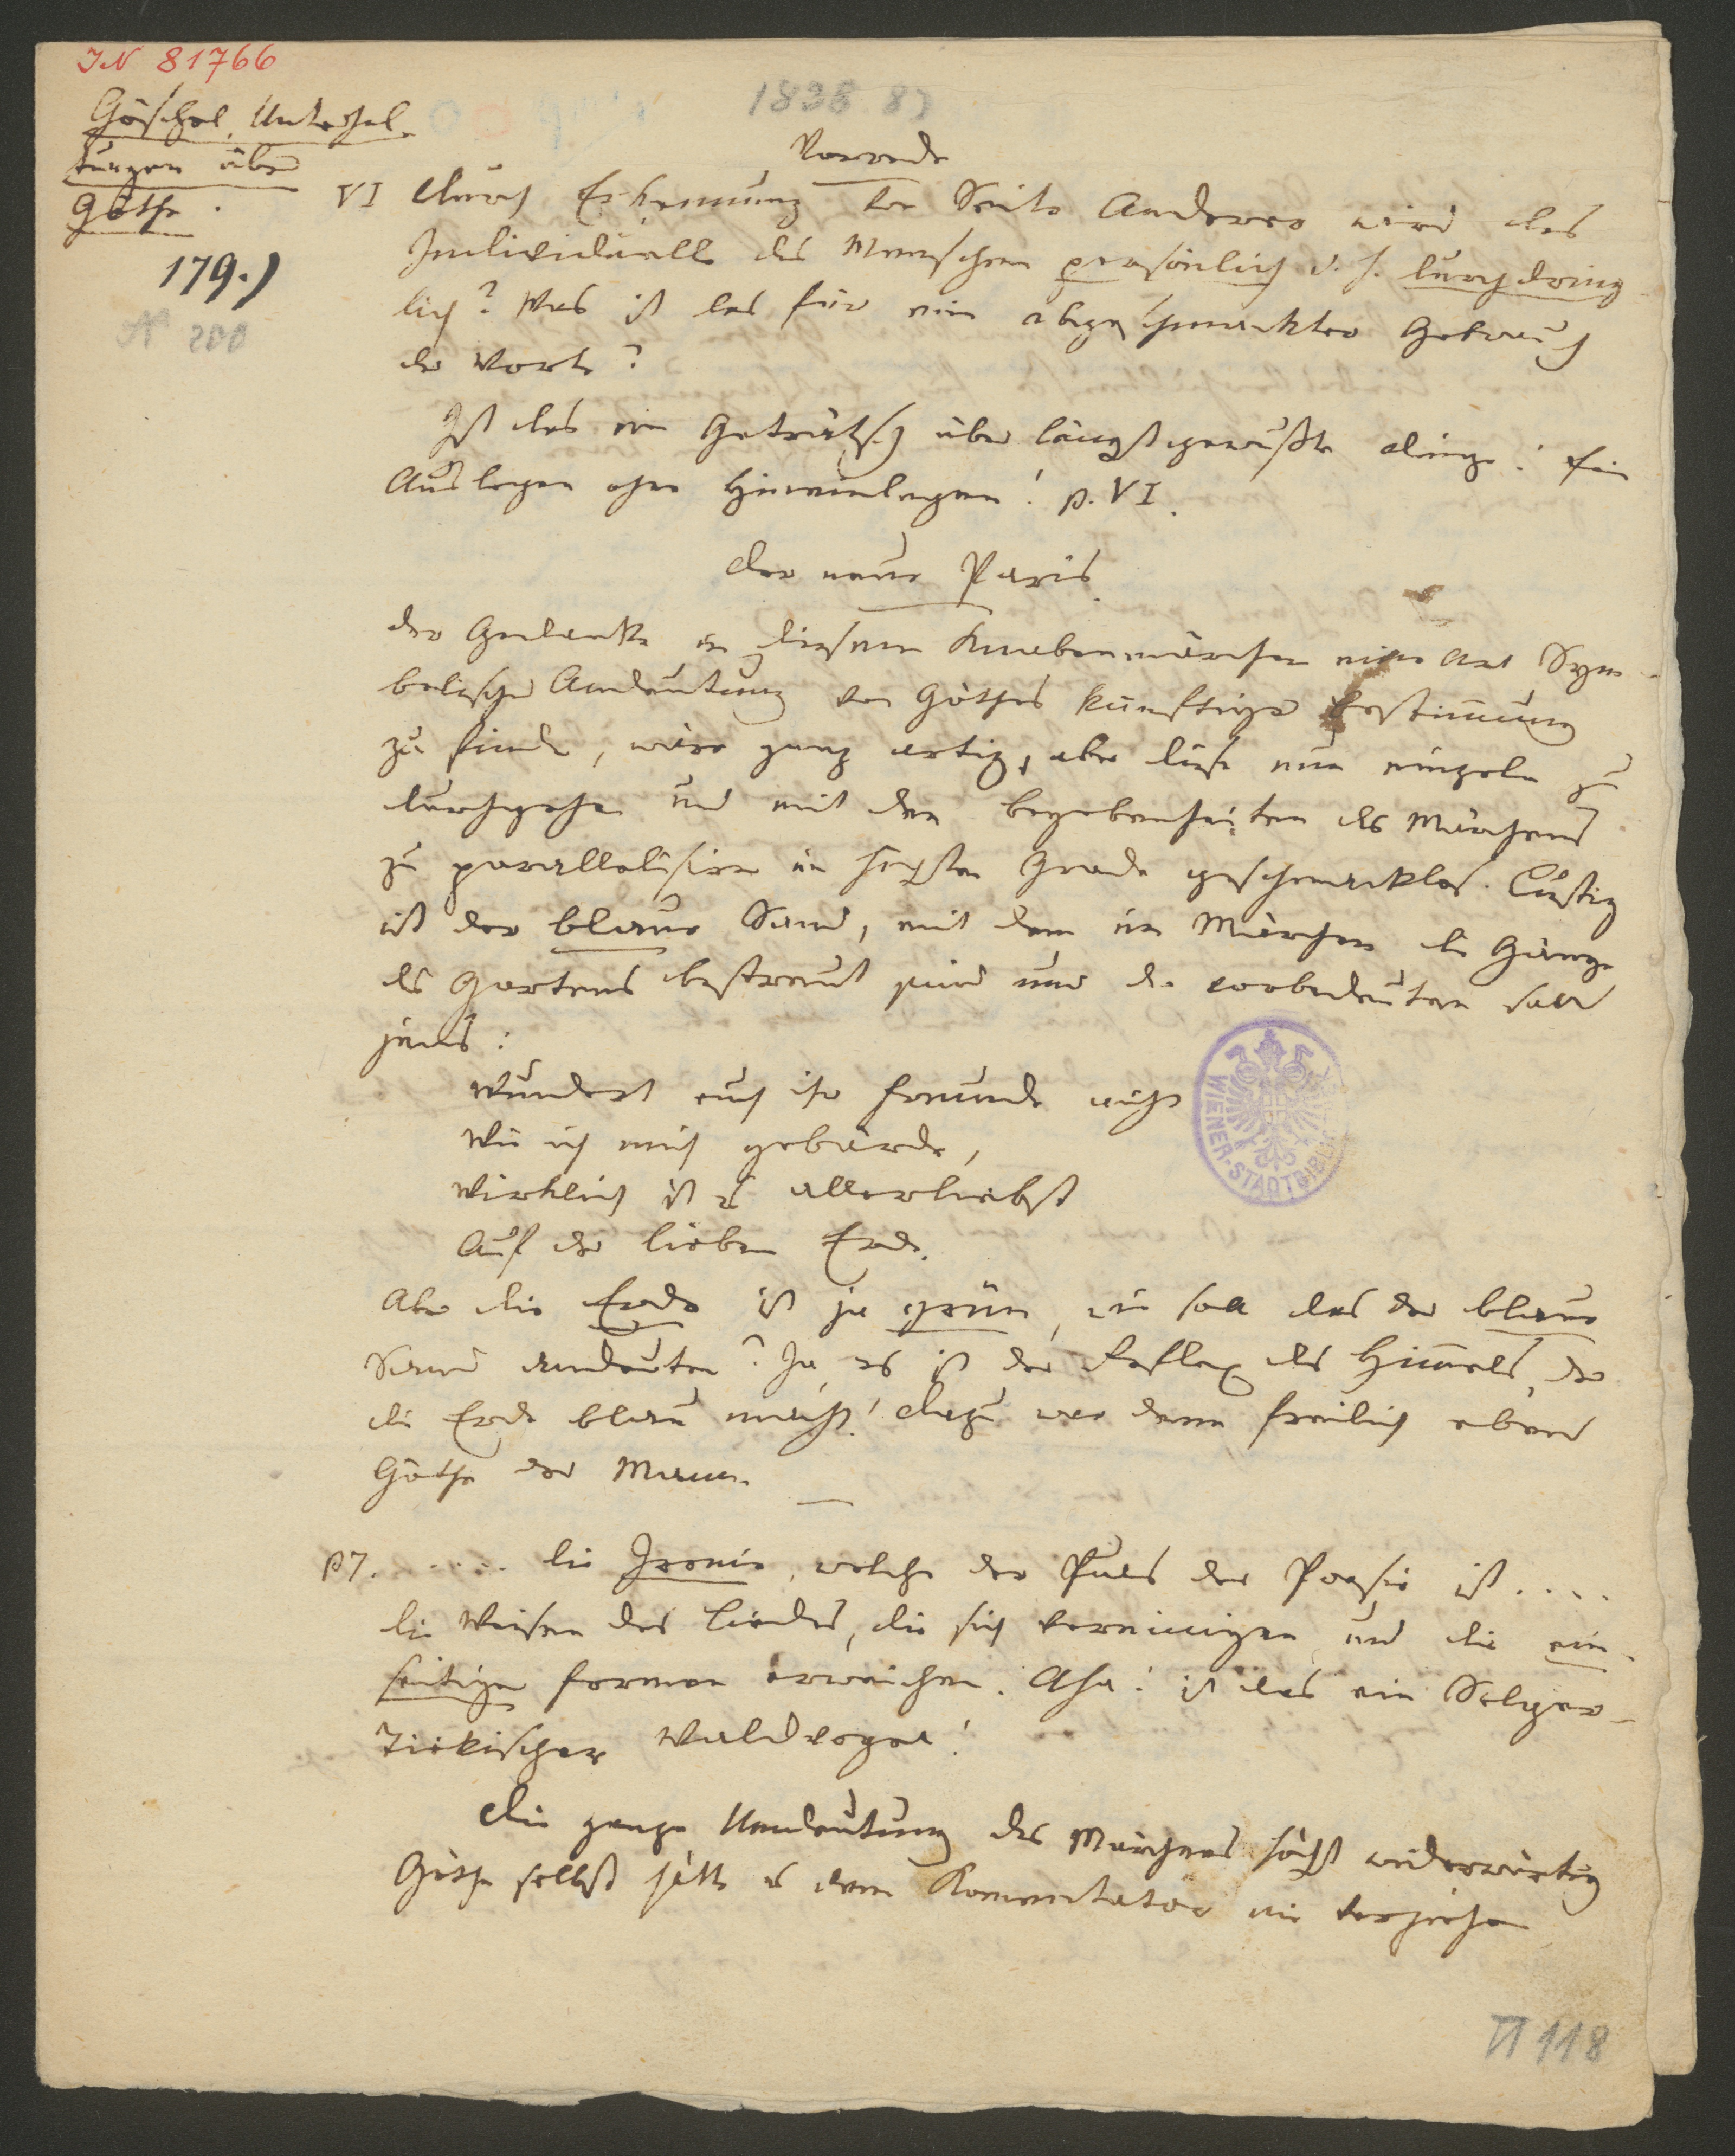 JN 81766
1838 87
Göschel, Unterhal-
tungen über
Göthe.
179.)
No 200
Vorrede
VI Durch Erkennung von Seite Anderer wird das
Individuelle des Menschen persönlich d. h. durchdring
lich? Was ist das für ein abgeschmackter Gebrauch
der Worte?
Ist das ein Geträtsch über längstgewußte Dinge! Ein
Auslegen ohne Hineinlegen! p. VI.
Der neue Paris.
Der Gedanke in diesem Knabenmärchen eine Art Sym-
bolischer Andeutung von Göthes künftiger Bestimmung
zu finden, wäre ganz artig, aber diese nun einzeln zu
durchgehen und mit den Begebenheiten des Märchens
zu parallelisiren im höchsten Grade geschmacklos. Lustig
ist der blaue Sand, mit dem im Märchen die Gänge
des Gartens bestreut sind und der vorbedeuten soll
jenes:
Wundert euch ihr Freunde nicht
Wie ich mich gebärde,
Wirklich ist es allerliebst
Auf der lieben Erde.
Aber die Erde ist ja grün, wie soll das der blaue
Sand andeuten? Ja, es ist der Reflex des Himmels, der
die Erde blau macht! Dazu war denn freilich eben
Göthe der Mann.
p 7. ..... die Ironie, welche der Puls der Poesie ist....
die Weisen des Liedes, die sich vereinigen und die ein-
seitigen Formen erweichen. Aha! ist das ein Solger-
Tiekischer Waldvogel!
Die ganze Umdeutung des Märchens höchst widerwärtig
Göthe selbst hätte es dem Komentator nie verziehen
WIENER-STADTBIBL
II 118